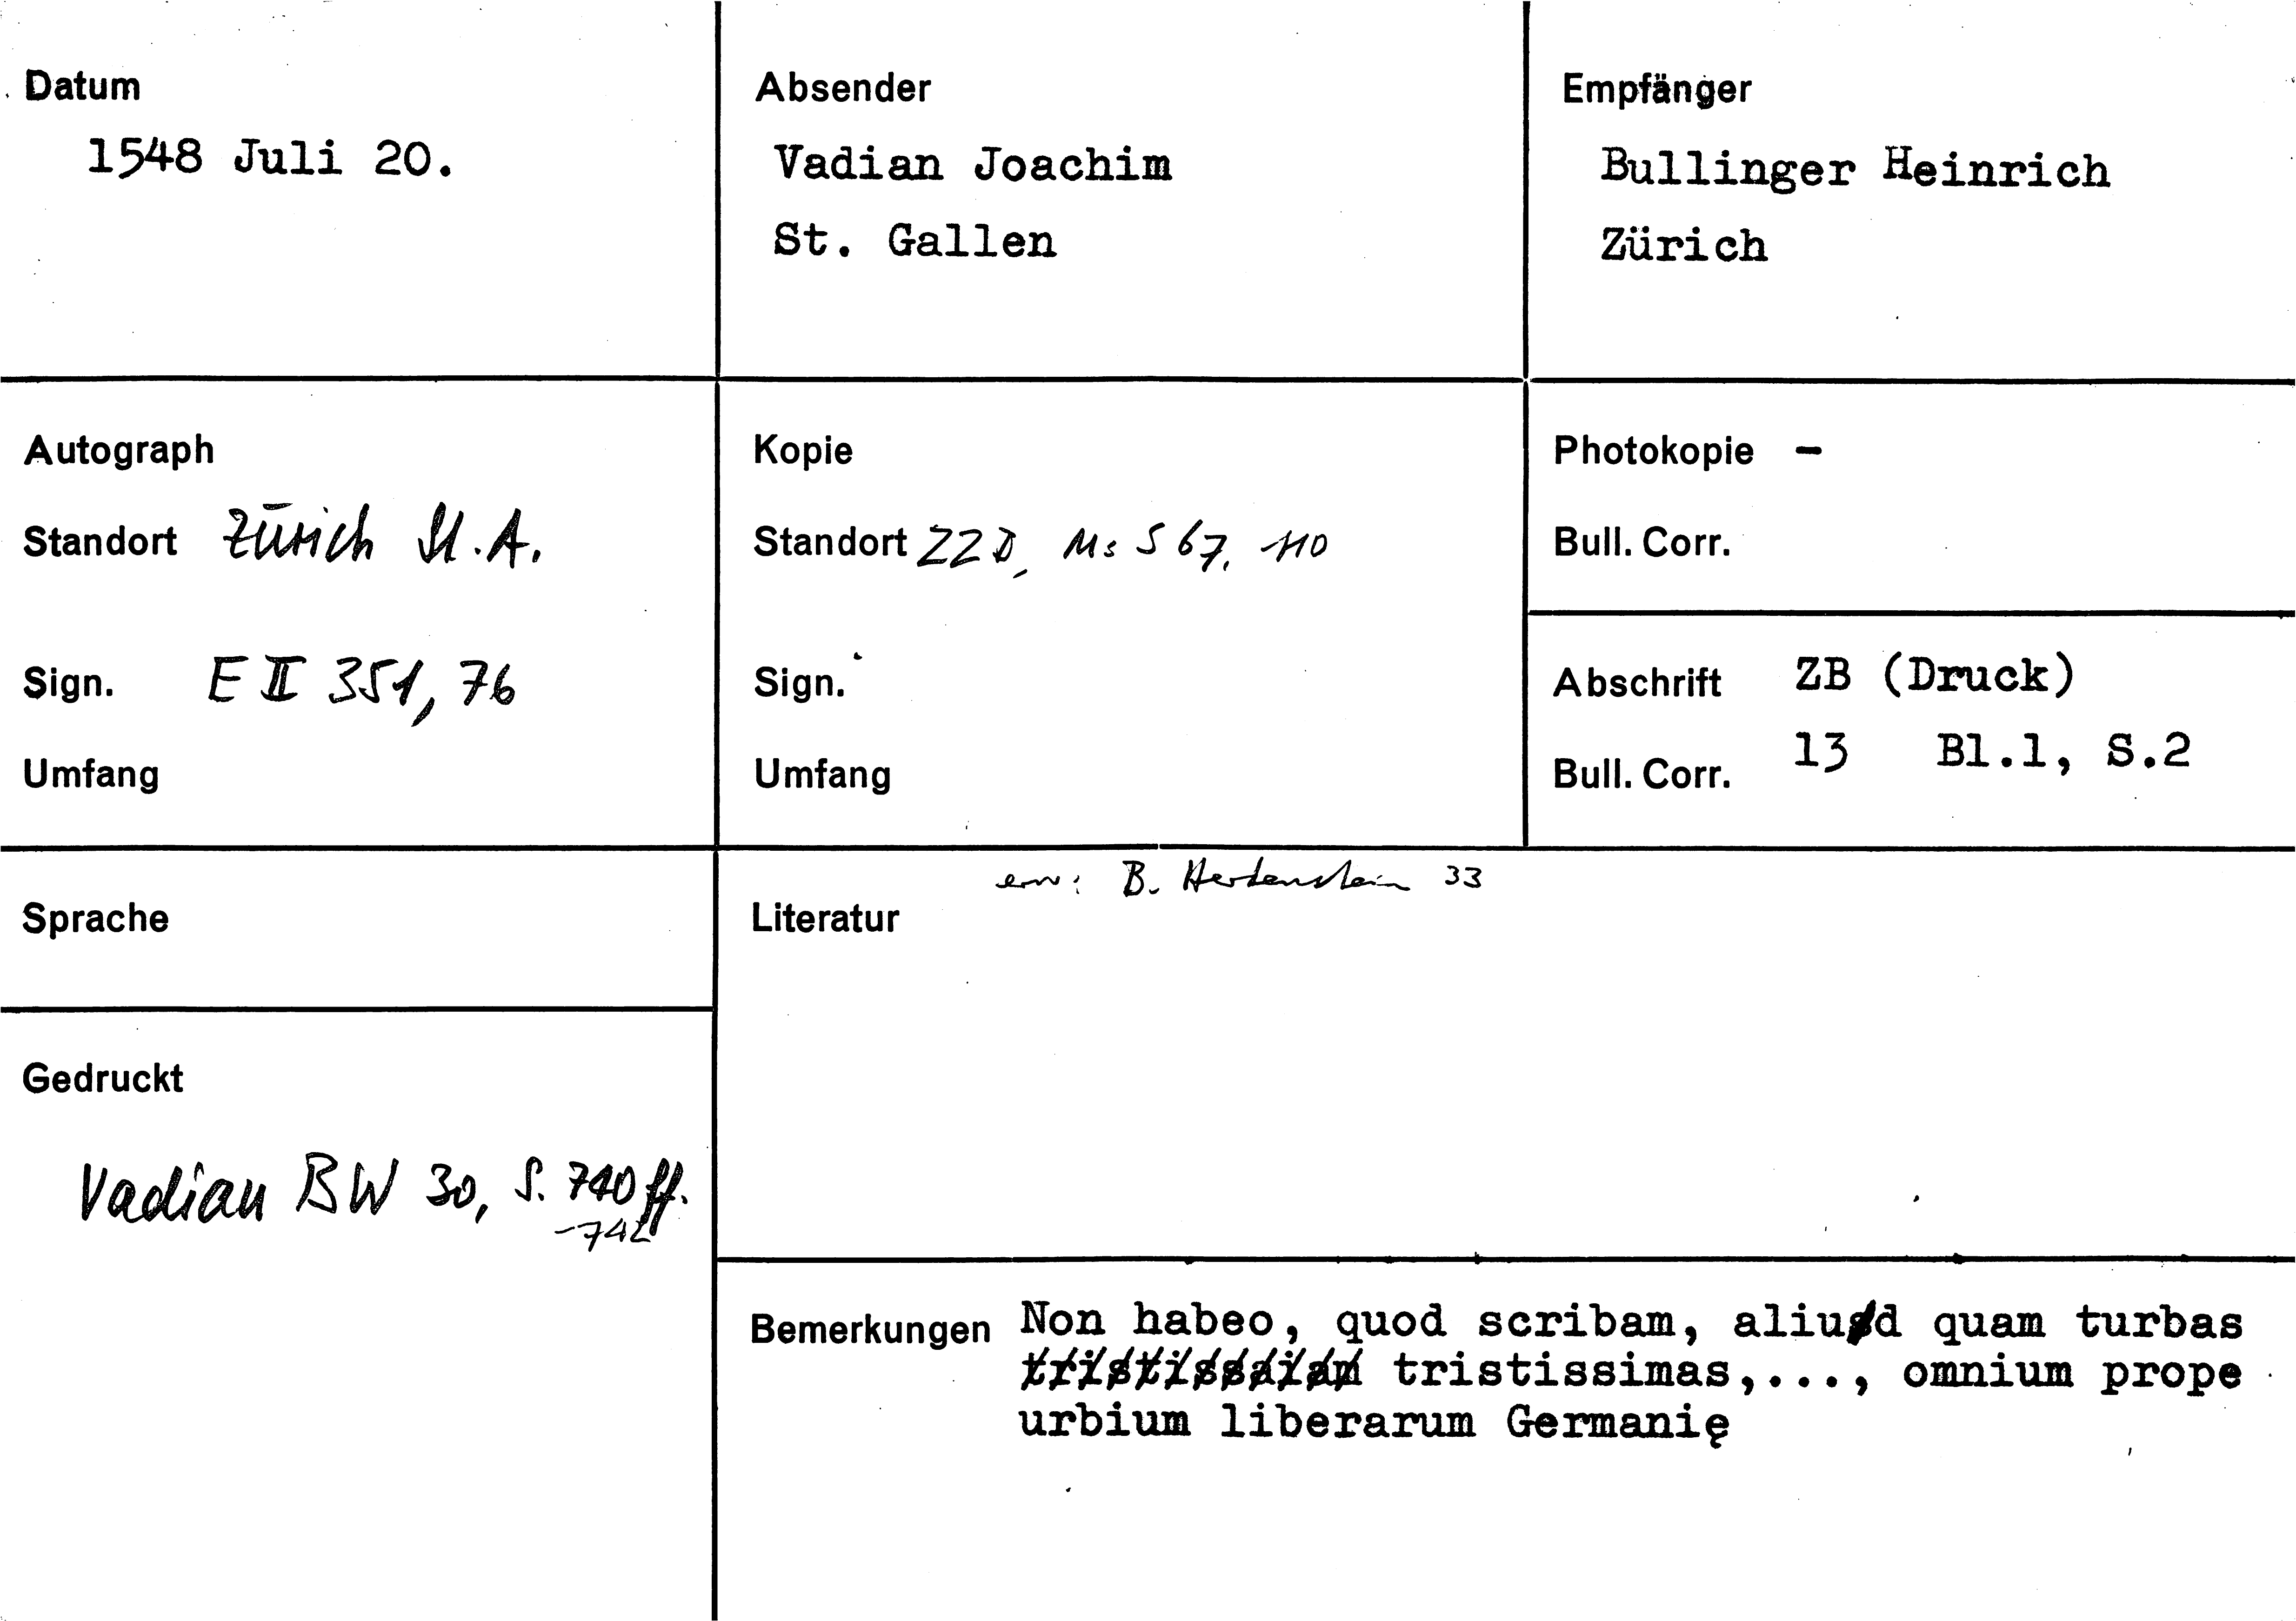 Datum
1548 Juli 20.
Absender
Vadian Joachim
St. Gallen
Empfänger
Bullinger Heinrich
Zürich
Autograph
Standort Zürich St.A.
Sign. E II 351, 76
Umfang
Kopie
Standort ZZB, Ms S 67, 110
Sign.
Umfang
Photokopie –
Bull. Corr.
Abschrift ZB (Druck)
Bull. Corr. 13 Bl.1, S.2
Sprache
Gedruckt
Vadian BW 30, S. 740 ff.
-742
erw: B. Hertenstein 33
Literatur
Bemerkungen Non habeo, quod scribam, aliud quam turbas
tristissimas,..., omnium prope
urbium liberarum Germanię